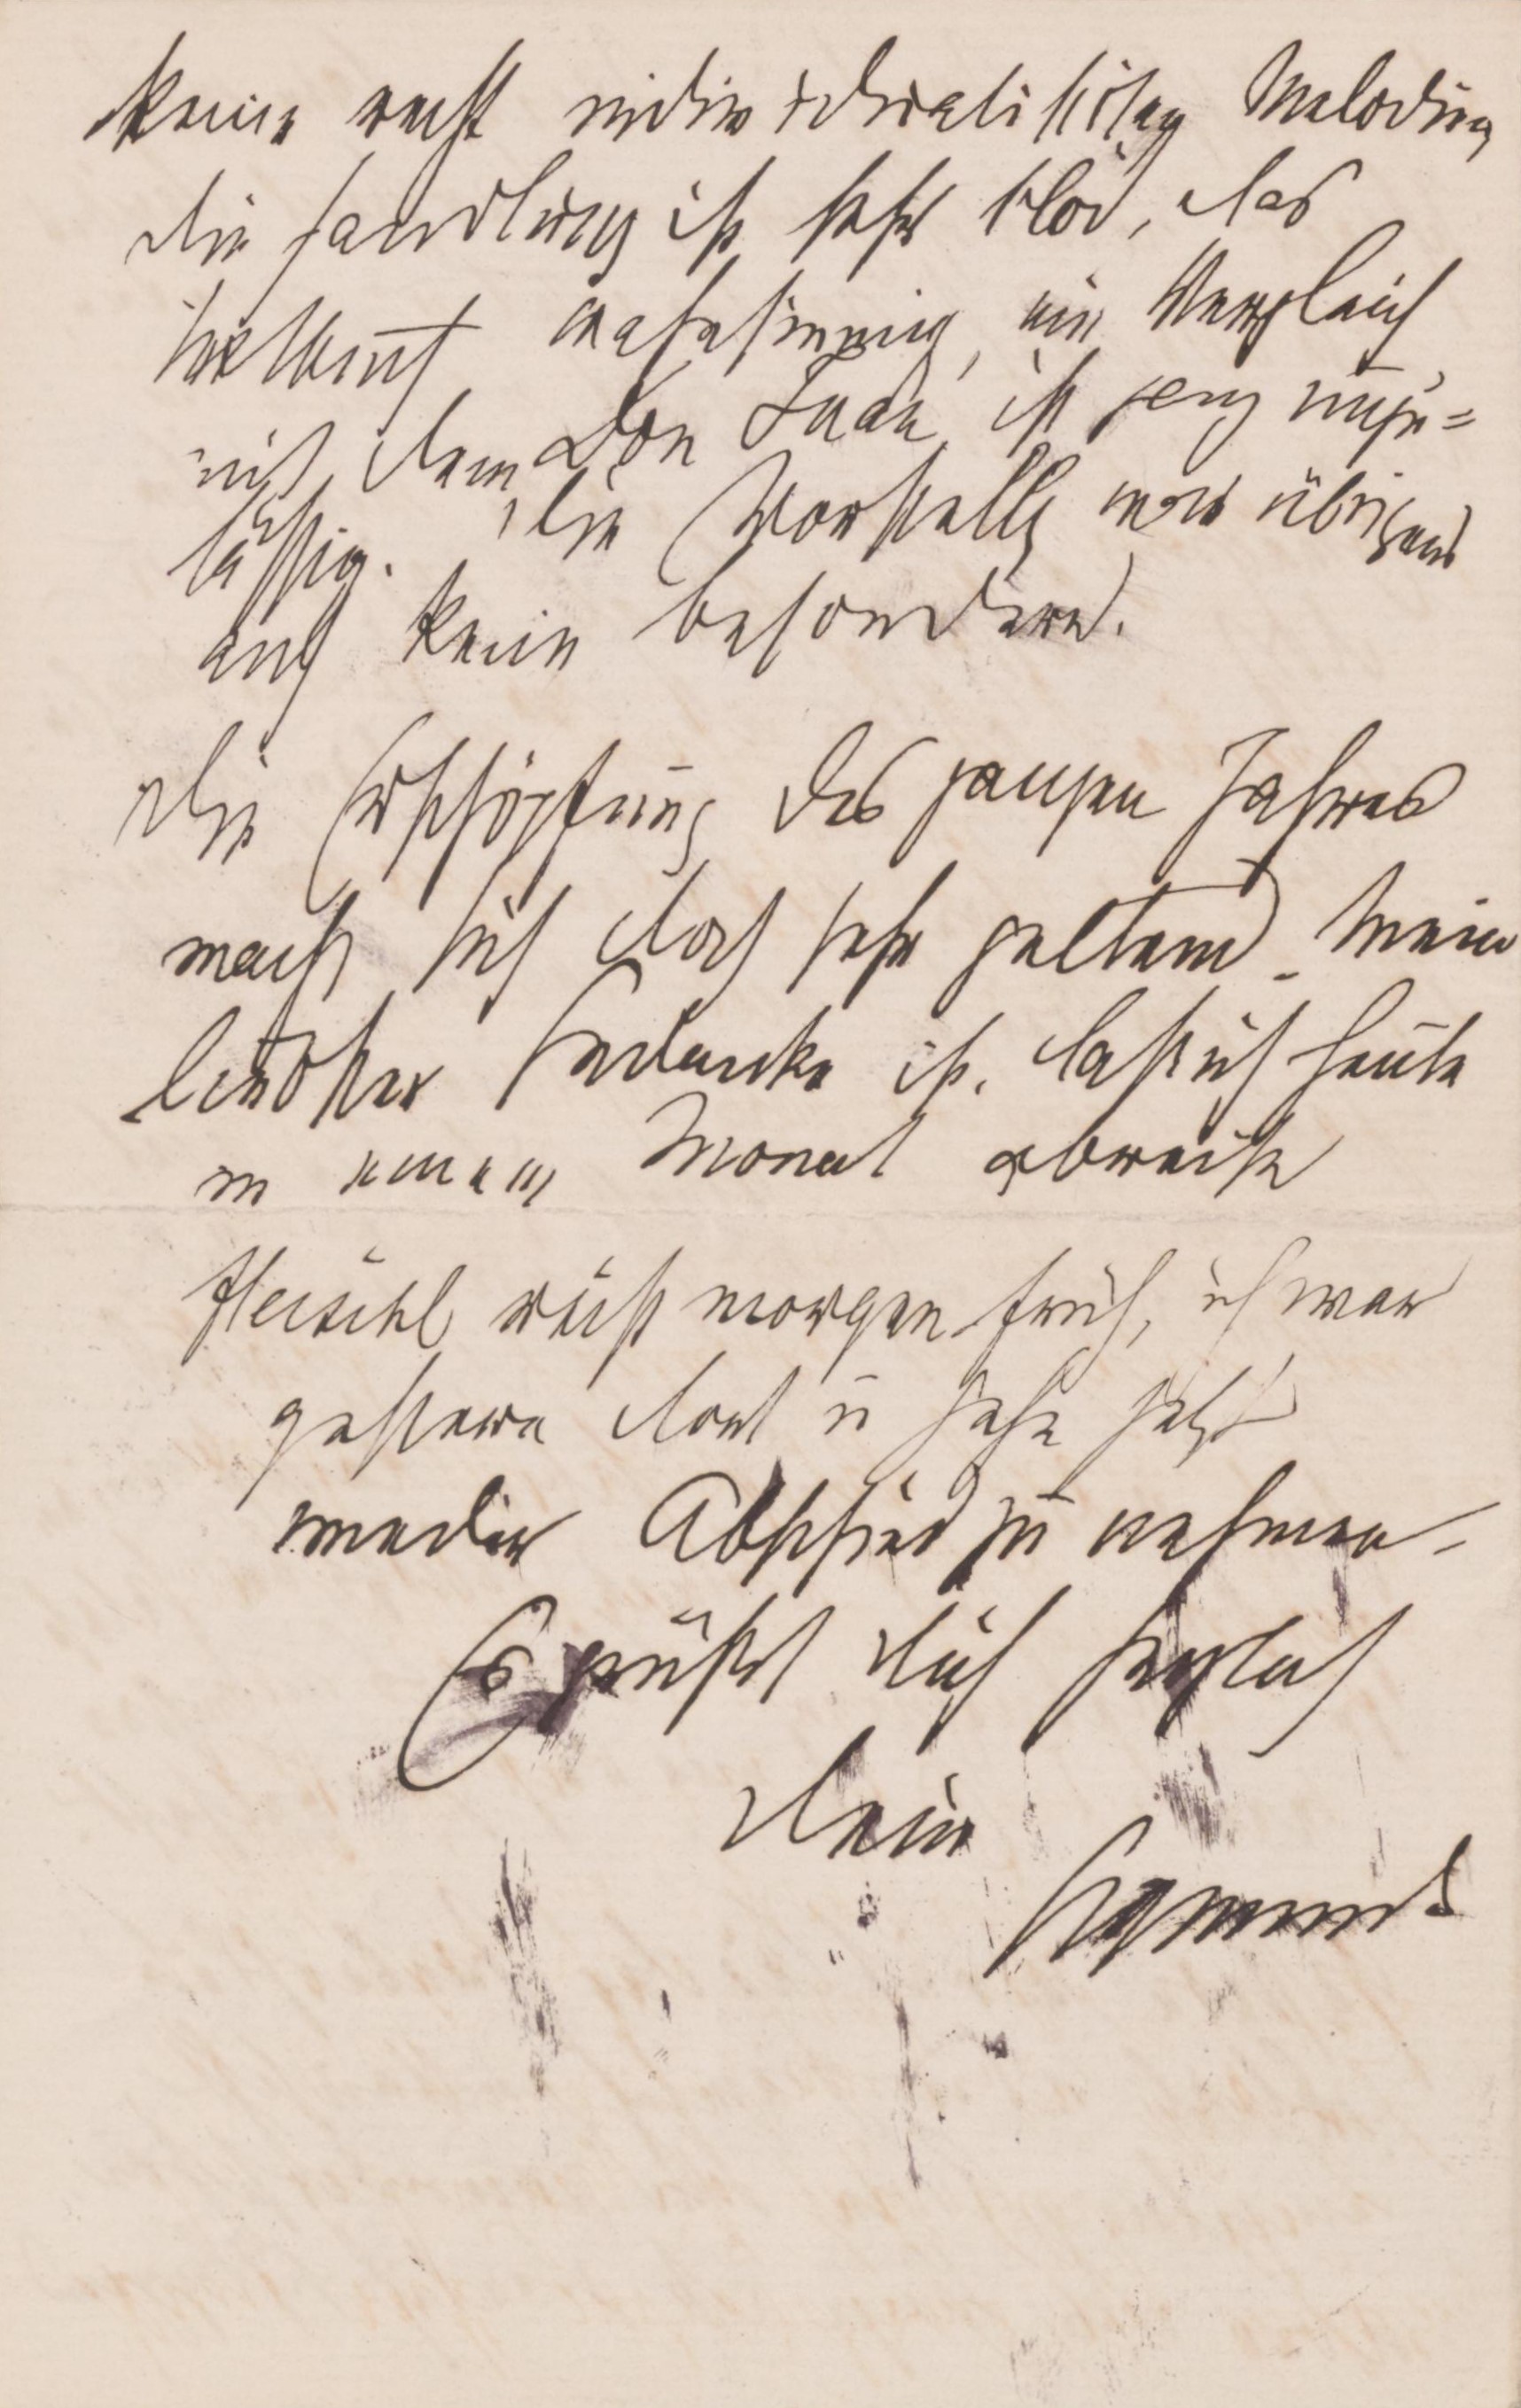 keine recht individualistischen Melodien,
die Handlung ist sehr blöd, das
Textbuch wahnsinnig, ein Vergleich
mit dem Don Juan ist ganz unzu=
lässig. Die Vorstellg war übrigens
auch keine besondere.
Die Erschöpfung des ganzen Jahres
macht sich doch sehr geltend. Mein
liebster Gedanke ist, daß ich heute
in einem Monat abreise
Fleischl reist morgen früh, ich war
gestern dort u gehe jetzt
wieder Abschied zu nehmen.
Es grüßt dich herzlich
dein
Sigmund